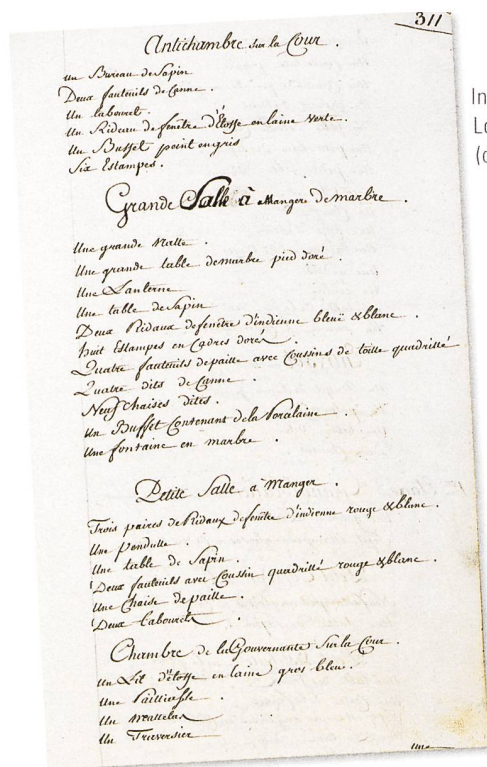 311
Antichambre sur la Cour.
Un Bureau de Sapin
Deux fauteuils de Canne.
Un tabouret.
Un Rideau de fenêtre d'Etoffe en laine verte.
Un Buffet peint en gris
Six Estampes.
Grande Salle à Manger de marbre.
Une grande Natte.
Une grande table de marbre pied doré.
Une Lanterne
Une table de Sapin
Deux Ridaux de fenêtre d'indienne bleüe & blanc.
huit Estampes en Cadres dorés
Quatre fauteuils de paille avec Coussins de toille quadrillé
Quatre dits de Canne.
Neuf Chaises dites.
Un Buffet Contenant de la Porcelaine.
Une fontaine en marbre.
Petite Salle à Manger.
Trois paires de Ridaux de fenêtre d'indienne rouge & blanc.
Une Pendulle.
Une table de Sapin.
Deux fauteuils avec Coussin quadrillé rouge & blanc.
Une Chaise de paille.
Deux tabourets.
Chambre de la Gouvernante Sur la Cour.
Un Lit d'étoffe en laine gros bleu.
Une Pailliasse.
Un Mattelas
Un Traversier
Une
In
Le
(c